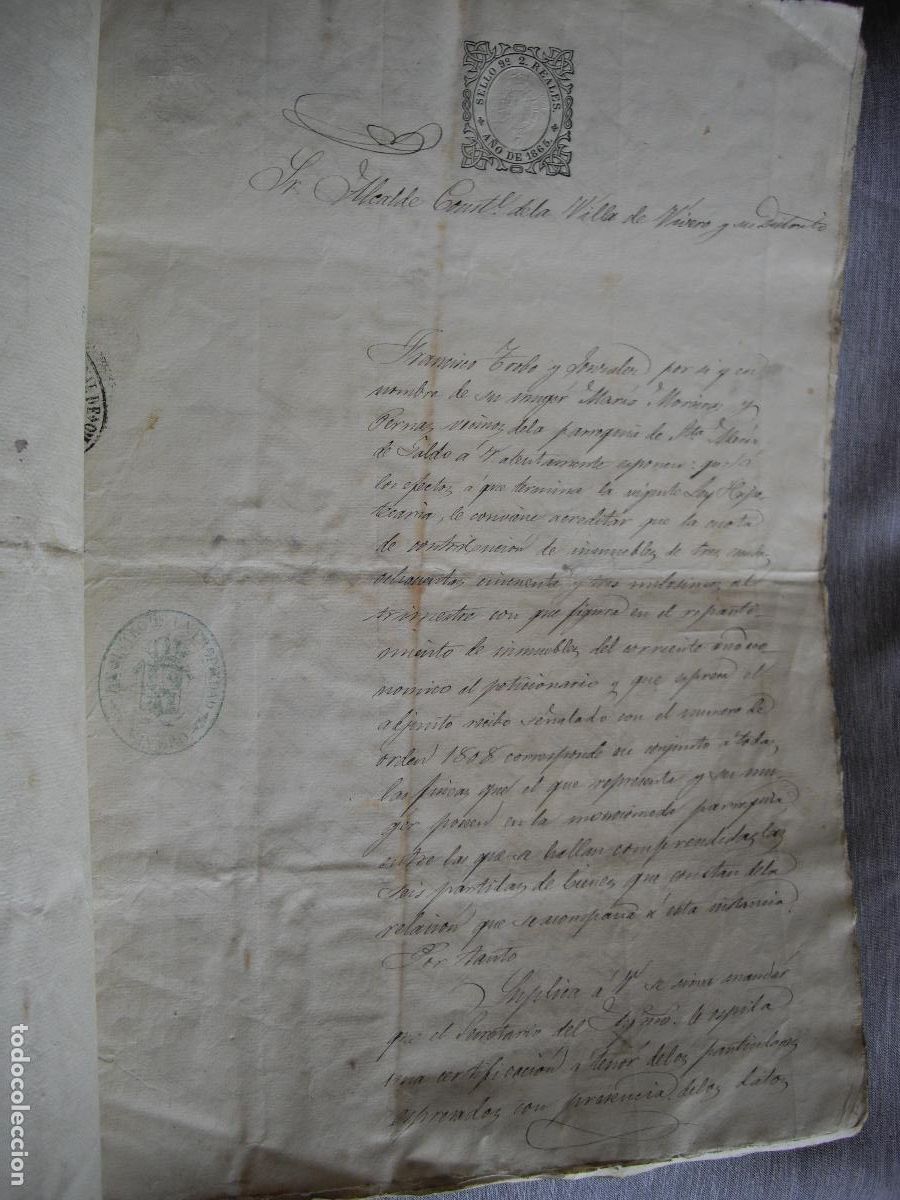 SELLO 9º 2 REALES.
AÑO DE 1865.
Sr. Alcalde Constl. de la Villa de Vivero y su Distrito
Francisco Trobo y Gonzalez por si y en
nombre de su muger María Morina y
Pernas vecinos dela parroquia de Sta María
de Galdo á V. atentamente esponen: que á
los efectos a que termina la vigente Ley Hipo
tecaria, le conviene acreditar que la cuota
de contribucion de inmuebles de tres
cincuenta y tres milesimas al
trimestre con que figura en el reparti-
miento de inmuebles del corriente año eco
nomico el peticionario y que espresa el
adjunto recibo señalado con el numero de
orden 1808 corresponde en conjunto á todas
las fincas que el que representa y su mu-
ger poseen en la mencionada parroquia
entre las que se hallan comprendidas las
seis partidas de bienes que constan dela
relacion que se acompaña á esta instancia.
Por tanto
Suplica á V. se sirva mandar
que el Secretario del Aymto. le espida
una certificación á tenor delos particulares
espresados con presencia delos datos
todocoleccion